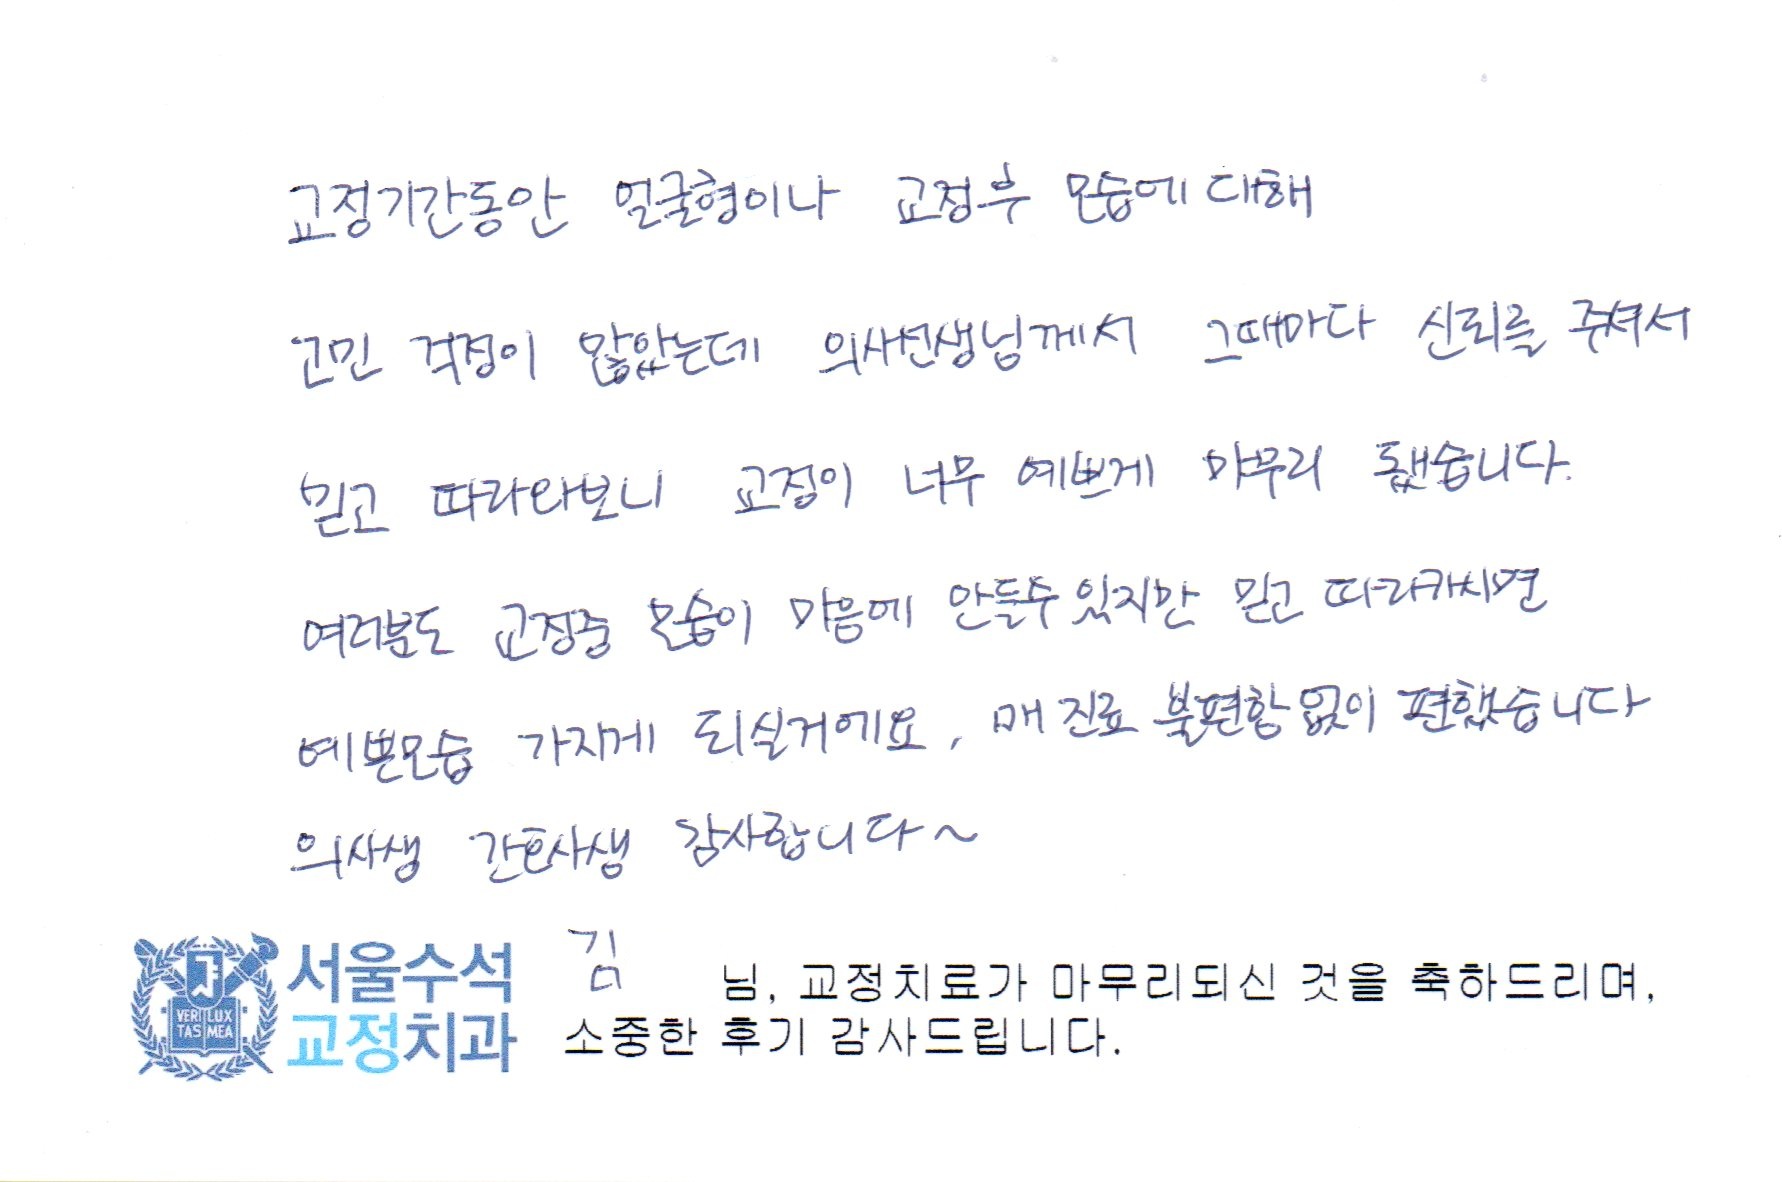 교정기간동안 얼굴형이나 교정후 모습에 대해
고민 걱정이 많았는데 의사선생님께서 그때마다 신뢰를 주셔서
믿고 따라와보니 교정이 너무 예쁘게 마무리 됐습니다.
여러분도 교정중 모습이 마음에 안들수 있지만 믿고 따라가시면
예쁜모습 가지게 되실거에요, 매 진료 불편함 없이 편했습니다
의사생 간호사생 감사합니다~
김 님, 교정치료가 마무리되신 것을 축하드리며,
소중한 후기 감사드립니다.
서울수석
교정치과
VERI LUX
TAS MEA